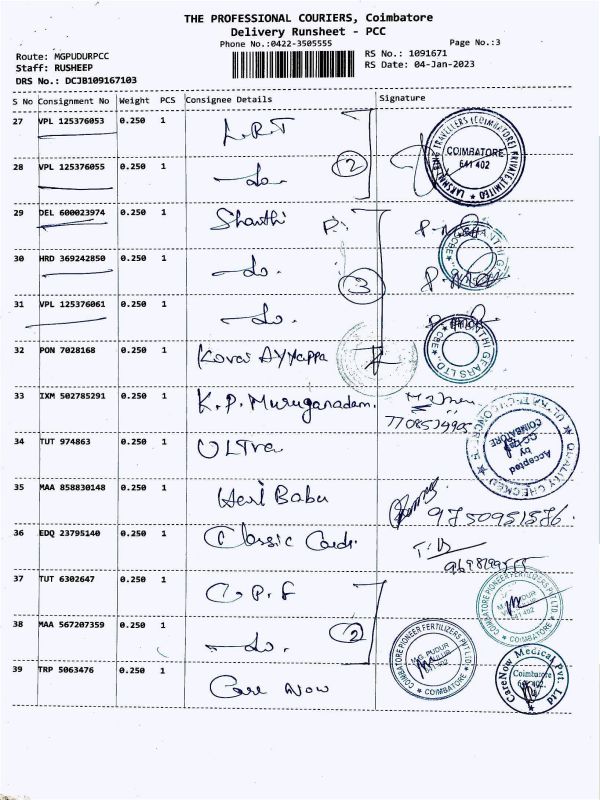 THE PROFESSIONAL COURIERS, Coimbatore
Delivery Runsheet - PCC
Phone No.:0422-3505555
Page No.:3
Route: MGPUDURPCC
RS No.: 1091671
Staff: RUSHEEP
RS Date: 04-Jan-2023
DRS No.: DCJB109167103
S No Consignment No Weight PCS Consignee Details Signature
27 VPL 125376053 0.250 1 L.R.T
28 VPL 125376055 0.250 1 -do. 2
LAKSHMI TRAVELLERS (COIMBATORE) PRIVATE LIMITED
COIMBATORE
641 402
29 DEL 600023974 0.250 1 Shanthi P.
30 HRD 369242850 0.250 1 -do. 3
31 VPL 125376061 0.250 1 -do.
SHANTHI GEARS LTD. CBE.
32 PON 7028168 0.250 1 Kovai Ayyappa
33 IXM 502785291 0.250 1 K.P. Muruganadam.
34 TUT 974863 0.250 1 ULTra
QUALITY CHECKED
Accepted
by
COIMBATORE
35 MAA 858830148 0.250 1 Hari Babu
9750951586
36 EDQ 23795140 0.250 1 Classic Cards.
37 TUT 6302647 0.250 1 C.P.F
38 MAA 567207359 0.250 1 -do. 2
COIMBATORE PIONEER FERTILIZERS PVT LTD
COIMBATORE
COIMBATORE PIONEER FERTILIZERS PVT LTD
MG. PUDUR
COIMBATORE
39 TRP 5063476 0.250 1 Care Now
CareNow Medical Pvt. Ltd
Coimbatore
641 402.